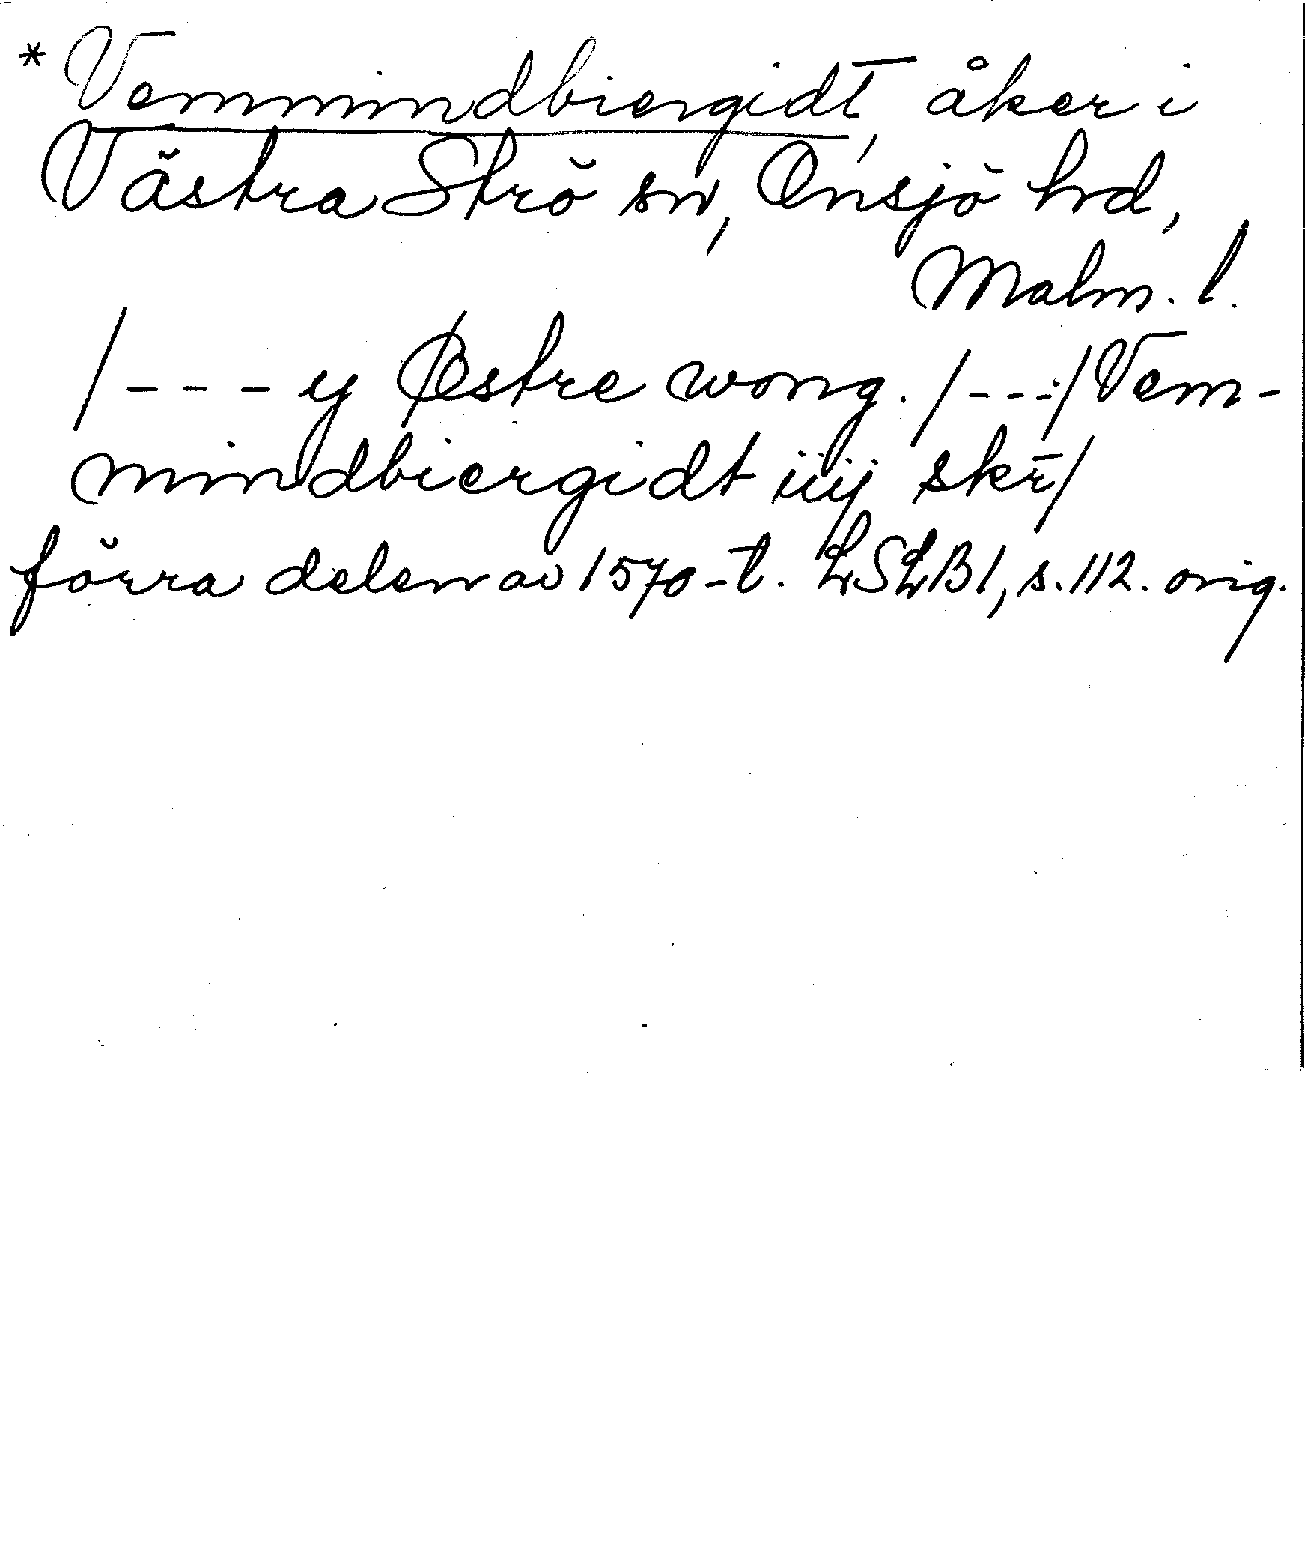 *Vemmindbiergidt, åker i
Västra Strö sn, Onsjö hrd,
Malm. l.
/--- y Østre wong. /---/ Vem-
mindbiergidt iiij skr̄/
förra delen av 1570-t. LSLB1, s. 112. orig.